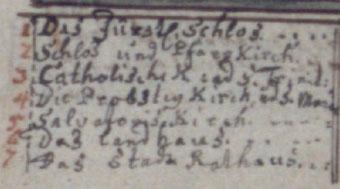 1 Das Fürstl. Schlos. . . . .
2 Schlos und Pfarr Kirch.
3 Catholische K
4 Die Probsteÿ Kirch
5 Salvatoris Kirch. . . .
6 Das Land haus. . . .
7 Das Stadt Rathaus. . .